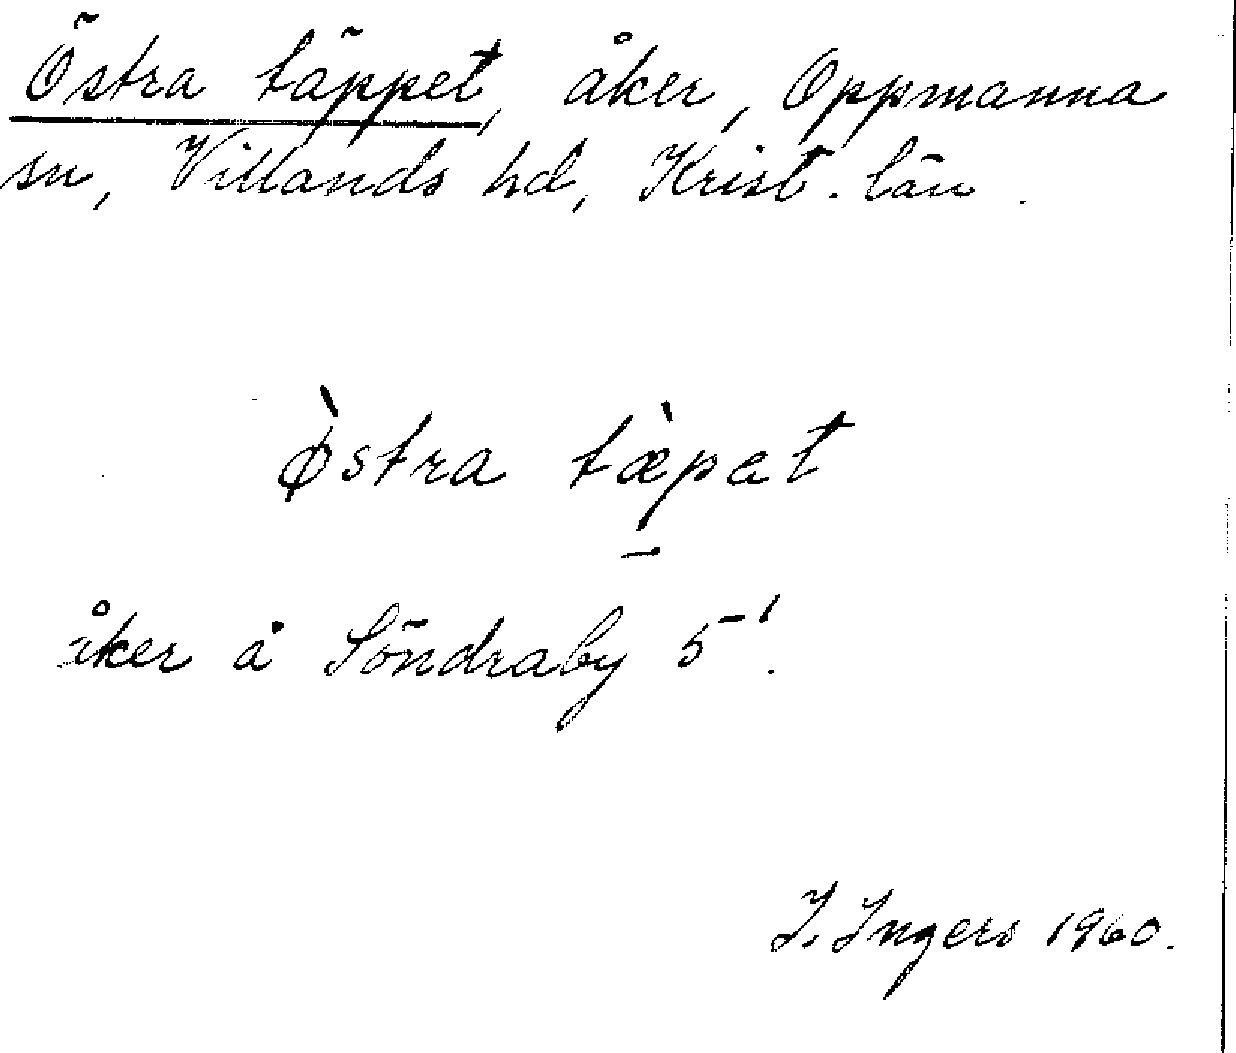 Östra täppet, åker, Oppmanna
sn, Villands hd, Krist. län.
ø̀stra tæ̀pat
åker å Söndraby 5'.
I. Ingers 1960.